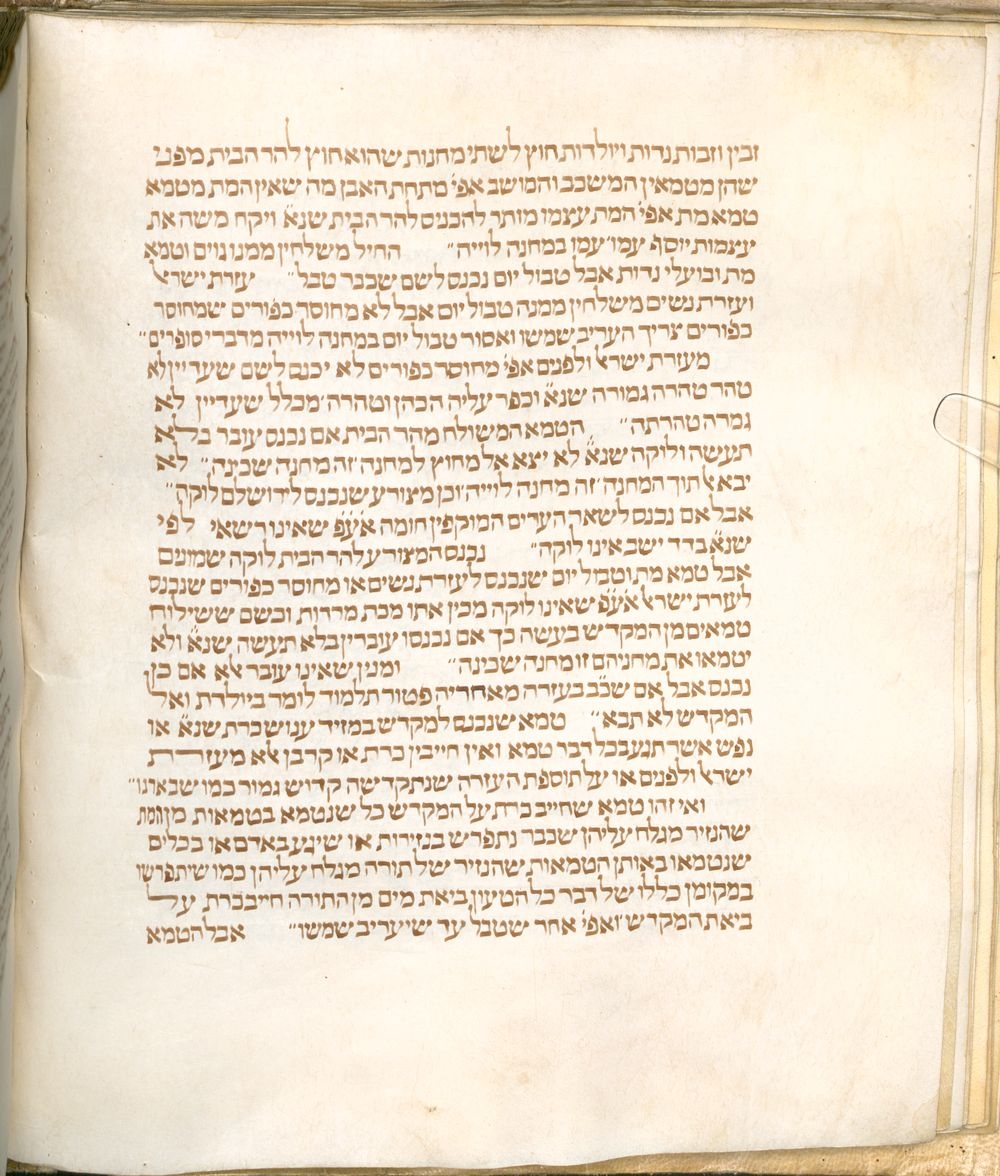 זבין וזבות נדות ויולדות חוץ לשתי מחנות שהוא חוץ להר הבית מפני
שהן מטמאין המשכב והמושב אפי' מתחת האבן מה שאין המת מטמא
טמא מת אפי' המת עצמו מותר להכניס להר הבית שנא' ויקח משה את
עצמות יוסף עמו עמו במחנה לוייה״ החיל משלחין ממנו גוים וטמא
מת ובועלי נדות אבל טבול יום נכנס לשם שכבר טבל״ עזרת ישראל
ועזרת נשים משלחין ממנה טבול יום אבל לא מחוסר כפורים שמחוסר
כפורים צריך העריב שמשו ואסור טבול יום במחנה לוייה מדברי סופרים״
מעזרת ישראל ולפנים אפי' מחוסר כפורים לא יכנס לשם שעדיין לא
טהר טהרה גמורה שנא' וכפר עליה הכהן וטהרה מכלל שעדיין לא
גמרה טהרתה״ הטמא המשולח מהר הבית אם נכנס עובר בלא
תעשה ולוקה שנא' לא יצא אל מחוץ למחנה זה מחנה שכינה״ לא
יבא אל תוך המחנה זה מחנה לוייה וכן מצורע שנכנס לירושלם לוקה״
אבל אם נכנס לשאר הערים המוקפין חומה אע'פ שאינו רשאי לפי
שנא' בדד ישב אינו לוקה״ נכנס המצורע להר הבית לוקה שמונים
אבל טמא מת וטבול יום שנכנס לעזרת נשים או מחוסר כפורים שנכנס
לעזרת ישראל אע'פ שאינו לוקה מכין אתו מכת מרדות וכשם ששילוח
טמאים מן המקדש בעשה כך אם נכנסו עוברין בלא תעשה שנא' ולא
יטמאו את מחניהם זו מחנה שכינה״ ומנין שאינו עובר אלא אם כן
נכנס אבל אם שכ'ב בעזרה מאחריה פטור תלמוד לומר ביולדת ואל
המקדש לא תבא״ טמא שנכנס למקדש במזיד ענוש כרת שנא' או
נפש אשר תגע בכל דבר טמא ואין חייבין כרת או קרבן אלא מעזרת
ישראל ולפנים או על תוספת העזרה שנתקדשה קדוש גמור כמו שבארנו״
ואי זהו טמא שחייב כרת על המקדש כל שנטמא בטמאות מן המת
שהנזיר מגלח עליהן שכבר נתפרש בנזירות או שיגע באדם או בכלים
שנטמאו באותן הטמאות שהנזיר של תורה מגלח עליהן כמו שיתפרשו
במקומן כללו של דבר כל הטעון ביאת מים מן התורה חייב כרת על
ביאת המקדש ואפי' אחר שטבל עד שיעריב שמשו״ אבל הטמא